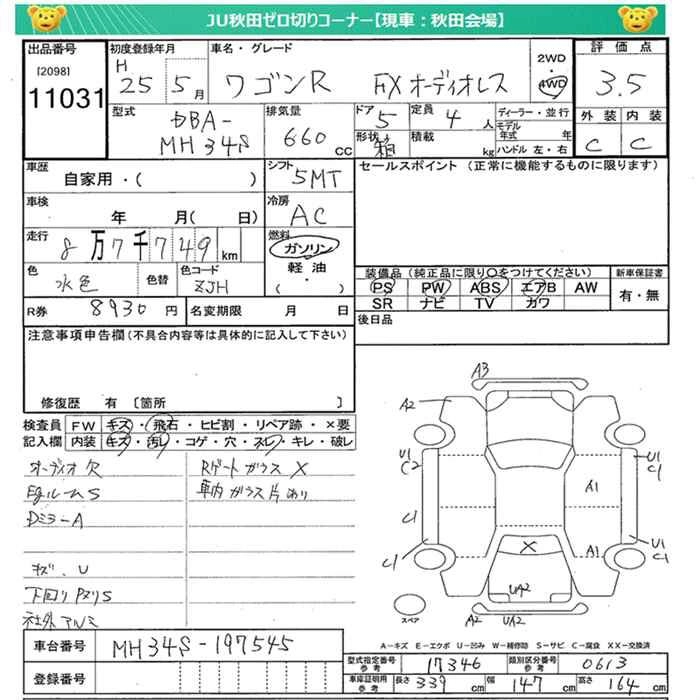 JU秋田ゼロ切りコーナー【現車：秋田会場】
出品番号
[2098]
11031
初度登録年月
H 25 5月
車名・グレード
ワゴンR FXオーディオレス
2WD
4WD
評価点
3.5
外装 内装
C C
型式
DBA-
MH34S
排気量
660 cc
ドア
5
定員
4人
形状
箱
積載
kg
ディーラー・並行
モデル年式 年
ハンドル 左・右
車歴
自家用・( )
シフト
5MT
セールスポイント (正常に機能するものに限ります)
車検
年 月( )
冷房
AC
走行
8万7千749km
燃料
ガソリン
軽油
( )
色
水色
色替
色コード
ZJH
装備品 (純正品に限り○をつけてください)
PS PW ABS エアB AW
SR ナビ TV カワ
新車保証書
有・無
R券 8930円
名変期限 月 日
後日品
注意事項申告欄 (不具合内容等は具体的に記入して下さい)
修復歴 有 [箇所 ]
検査員記入欄
FW キズ・飛石・ヒビ割・リペア跡・×要
内装 キズ・汚レ・コゲ・穴・スレ・キレ・破レ
オーディオ欠
EgルームS
DミラーA
キズ、U
下回りPズリS
社外アルミ
Rゲートガラス X
車内ガラス片あり
A3
A2
U1
C2
C1
C1
U1
C1
A1
A1
U1
C1
X
UA2
A2 UA2
スペア
A－キズ E－エクボ U－凹み W－補修跡 S－サビ C－腐食 XX－交換済
車台番号
MH34S-197545
登録番号
型式指定番号
参考
17346
類別区分番号
参考
0613
車庫証明用
参考
長さ 339cm
幅 147cm
高さ 164cm